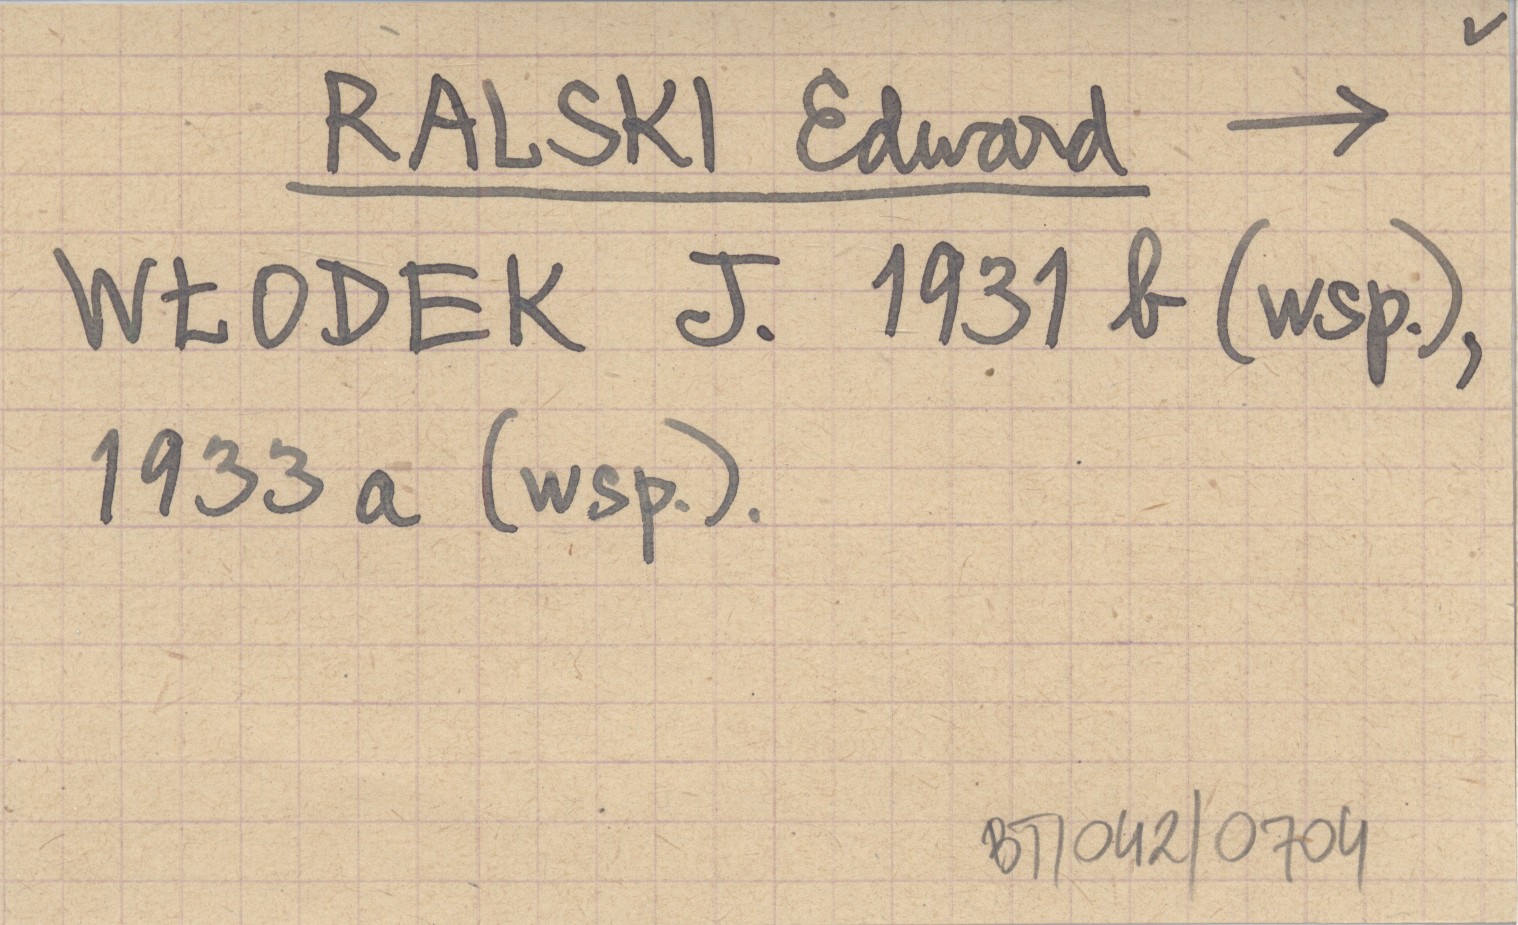 ✓
RALSKI Edward →
WŁODEK J. 1931 b (wsp.),
1933 a (wsp.).
BT/042/0704